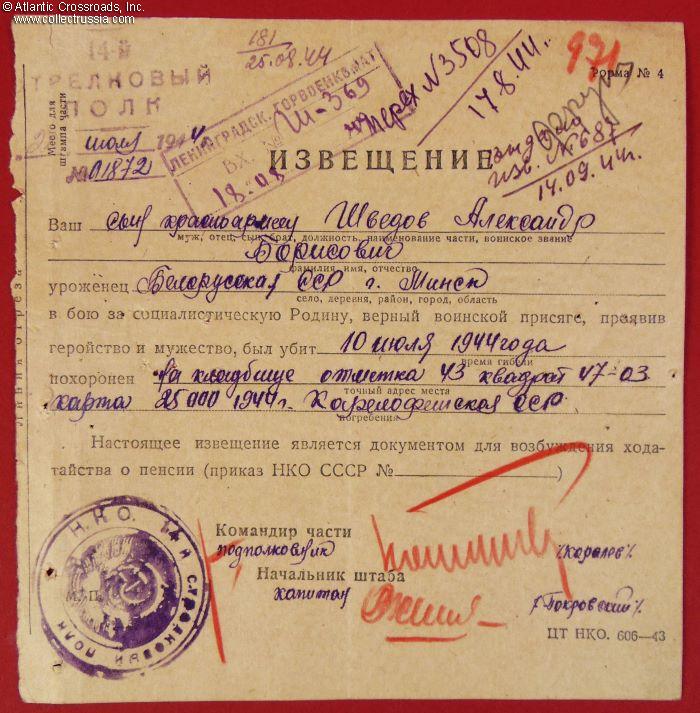 © Atlantic Crossroads, Inc.
www.collectrussia.com
14-й
СТРЕЛКОВЫЙ
ПОЛК
июля 1944
№01872
Место для
штампа части
181
25.08.44
ЛЕНИНГРАДСК. ГОРВОЕНКОМАТ
ВХ. №
Ш-369
18.08
№3508
17.8.44.
971
Форма № 4
изв. №687
14.09.44г.
ИЗВЕЩЕНИЕ
Ваш сын красноармеец Шведов Александр
муж, отец, сын, брат, должность, наименование части, воинское звание
Борисович
фамилия, имя, отчество
уроженец Белорусская ССР г. Минск
село, деревня, район, город, область
в бою за социалистическую Родину, верный воинской присяге, проявив
геройство и мужество, был убит 10 июля 1944 года
время гибели
похоронен на кладбище отметка 43 квадрат 47-03
точный адрес места
карта 25000 1944г. Карелофинская ССР
погребения
Настоящее извещение является документом для возбуждения хода-
тайства о пенсии (приказ НКО СССР № )
Линия отреза
Командир части
подполковник
/Королев/.
Начальник штаба
капитан
/Покровский/.
М. П.
Н.К.О. 14 й стрелковый полк
ЦТ НКО. 606—43